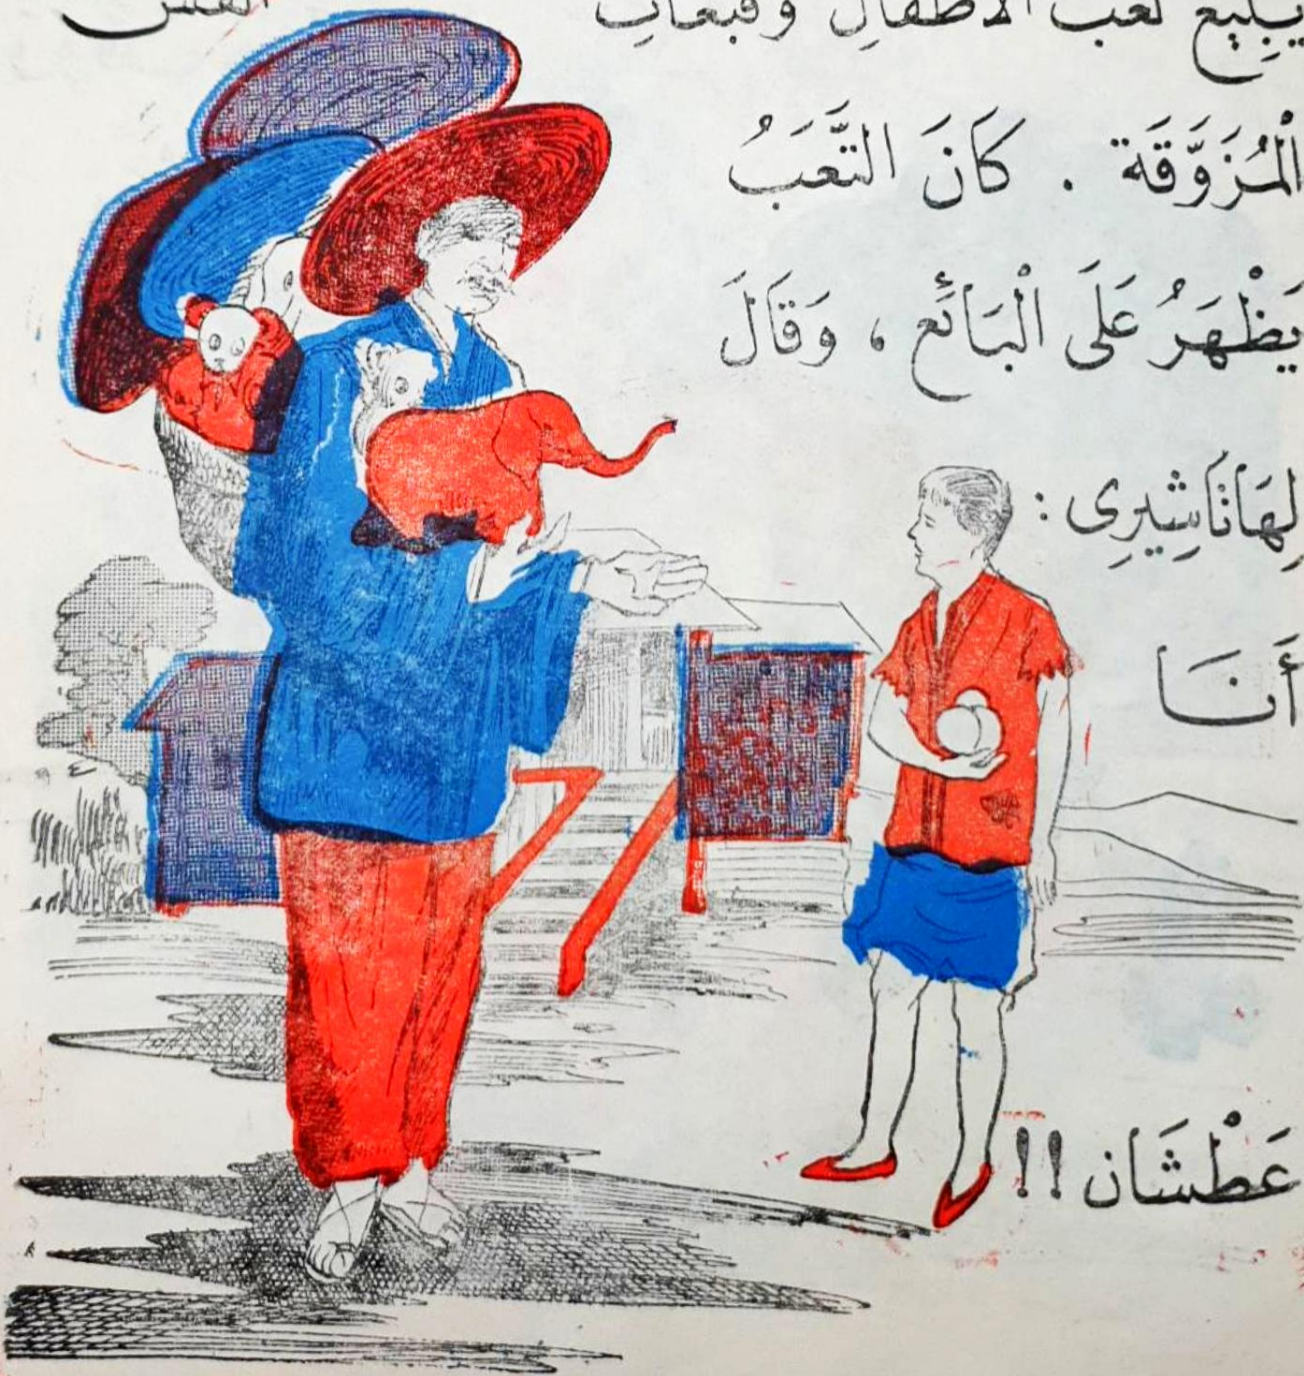 يَبِيْعُ لُعَبَ الأَطْفَالِ وَقُبَّعَاتِ القَشّ
الْمُزَوَّقَة . كَانَ التَّعَبُ
يَظْهَرُ عَلَى الْبَائَعِ ، وَقَالَ
لِهَانَاشِيرِى :
أَنَا
عَطْشَان !!